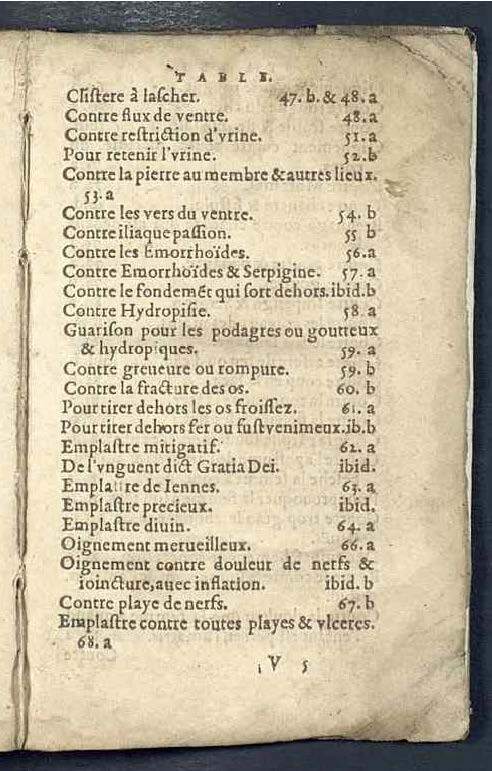 TABLE.
Clistere à lascher. 47. b. & 48. a
Contre flux de ventre. 48. a
Contre restriction d'vrine. 51. a
Pour retenir l'vrine. 52. b
Contre la pierre au membre & autres lieux.
53. a
Contre les vers du ventre. 54. b
Contre iliaque passion. 55 b
Contre les Emorrhoïdes. 56. a
Contre Emorrhoïdes & Serpigine. 57. a
Contre le fondemẽt qui sort dehors. ibid. b
Contre Hydropisie. 58 a
Guarison pour les podagres ou goutteux
& hydropiques. 59. a
Contre greueure ou rompure. 59. b
Contre la fracture des os. 60. b
Pour tirer dehors les os froissez. 61. a
Pour tirer dehors fer ou fust venimeux. ib. b
Emplastre mitigatif. 62. a
De l'vnguent dict Gratia Dei. ibid.
Emplastre de Iennes. 63. a
Emplastre precieux. ibid.
Emplastre diuin. 64. a
Oignement merueilleux. 66. a
Oignement contre douleur de nerfs &
ioincture, auec inflation. ibid. b
Contre playe de nerfs. 67. b
Emplastre contre toutes playes & vlceres.
68. a
V 5